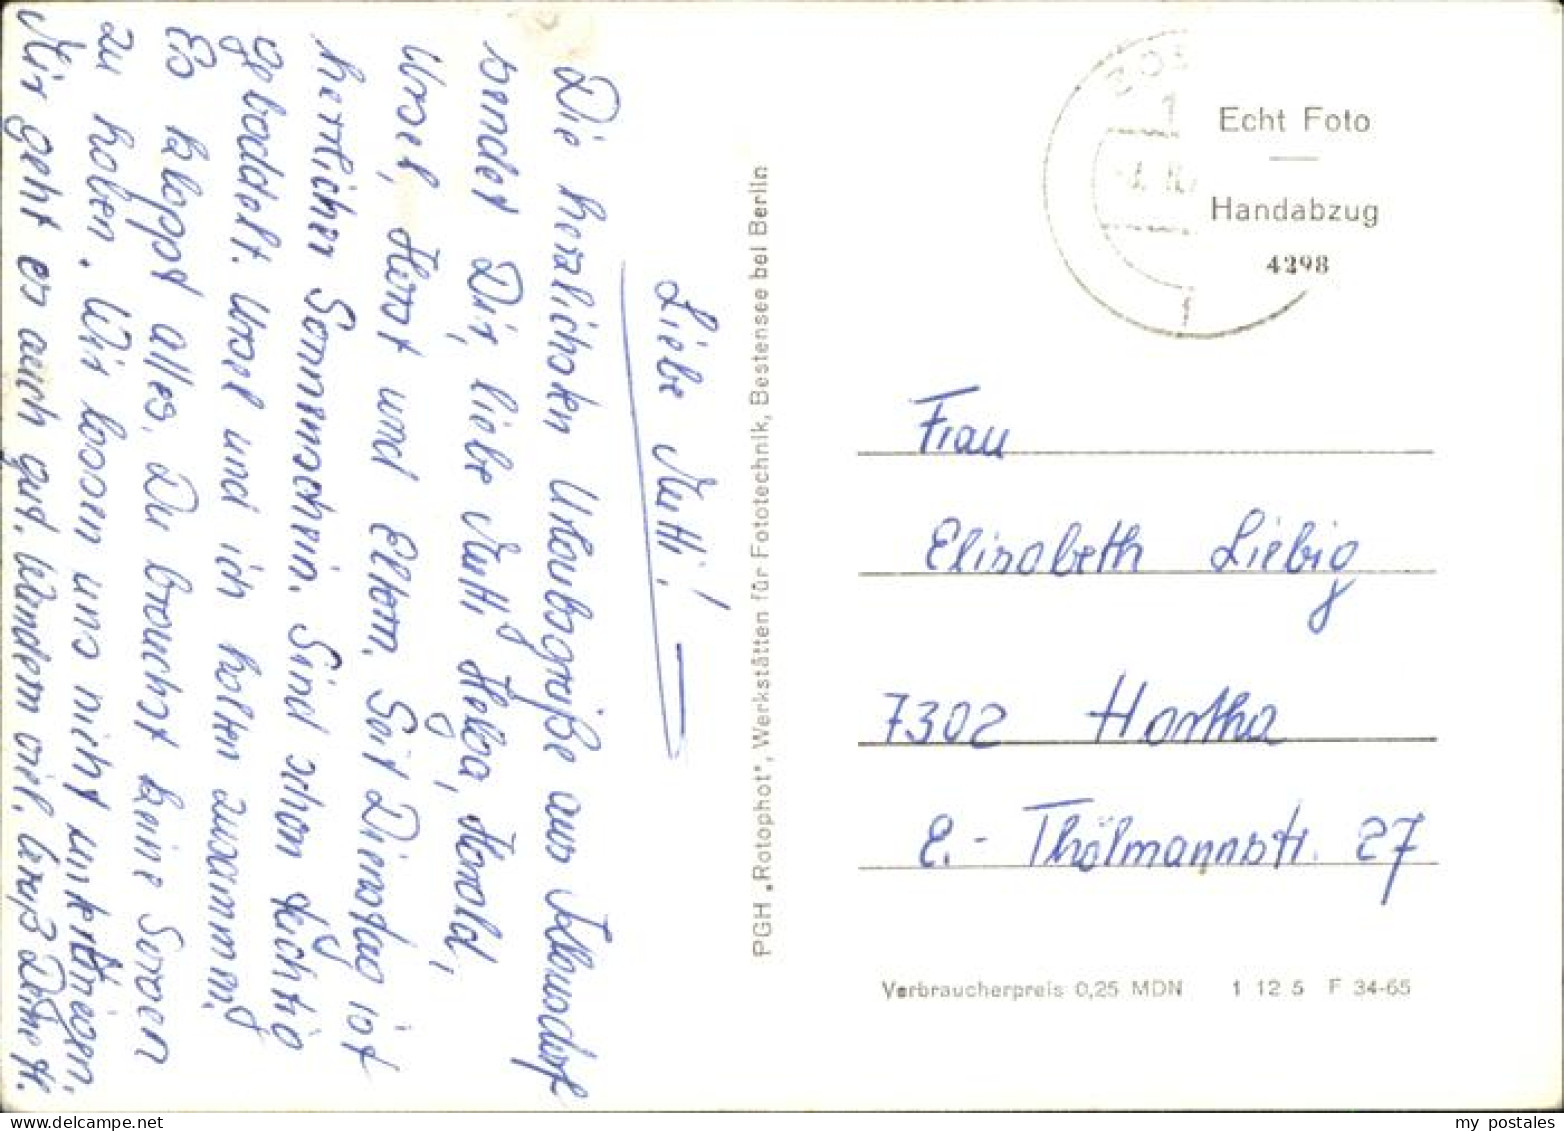 Liebe Mutti!
Die herzlichsten Urlaubsgrüße aus
sendet Dir, liebe Mutti Helga, Harald,
Ursel, Horst und Eltern. Seit Dienstag ist
herrlicher Sonnenschein. Sind schon tüchtig
gepaddelt. Ursel und ich halten zusammen.
Es klappt alles. Du brauchst keine Sorgen
zu haben. Wir lassen uns nicht unterkriegen.
Mir geht es auch gut. Wandern viel. Gruß Deine H.
PGH „Rotophot“, Werkstätten für Fototechnik, Bestensee bei Berlin
Echt Foto
Handabzug
4298
Frau
Elisabeth Liebig
7302 Hartha
E.- Thälmannstr. 27
Verbraucherpreis 0,25 MDN 1 12 5 F 34-65
my postales